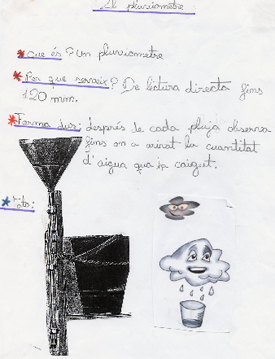 El pluviómetre
*Que és? Un pluviometre
*Por que serveix? De lectura directa fins
120 mm.
*Forma d'ús: després de cada pluja observa
fins on a arivat la cuantitat
d'aigua que ja caigut.
*Foto: